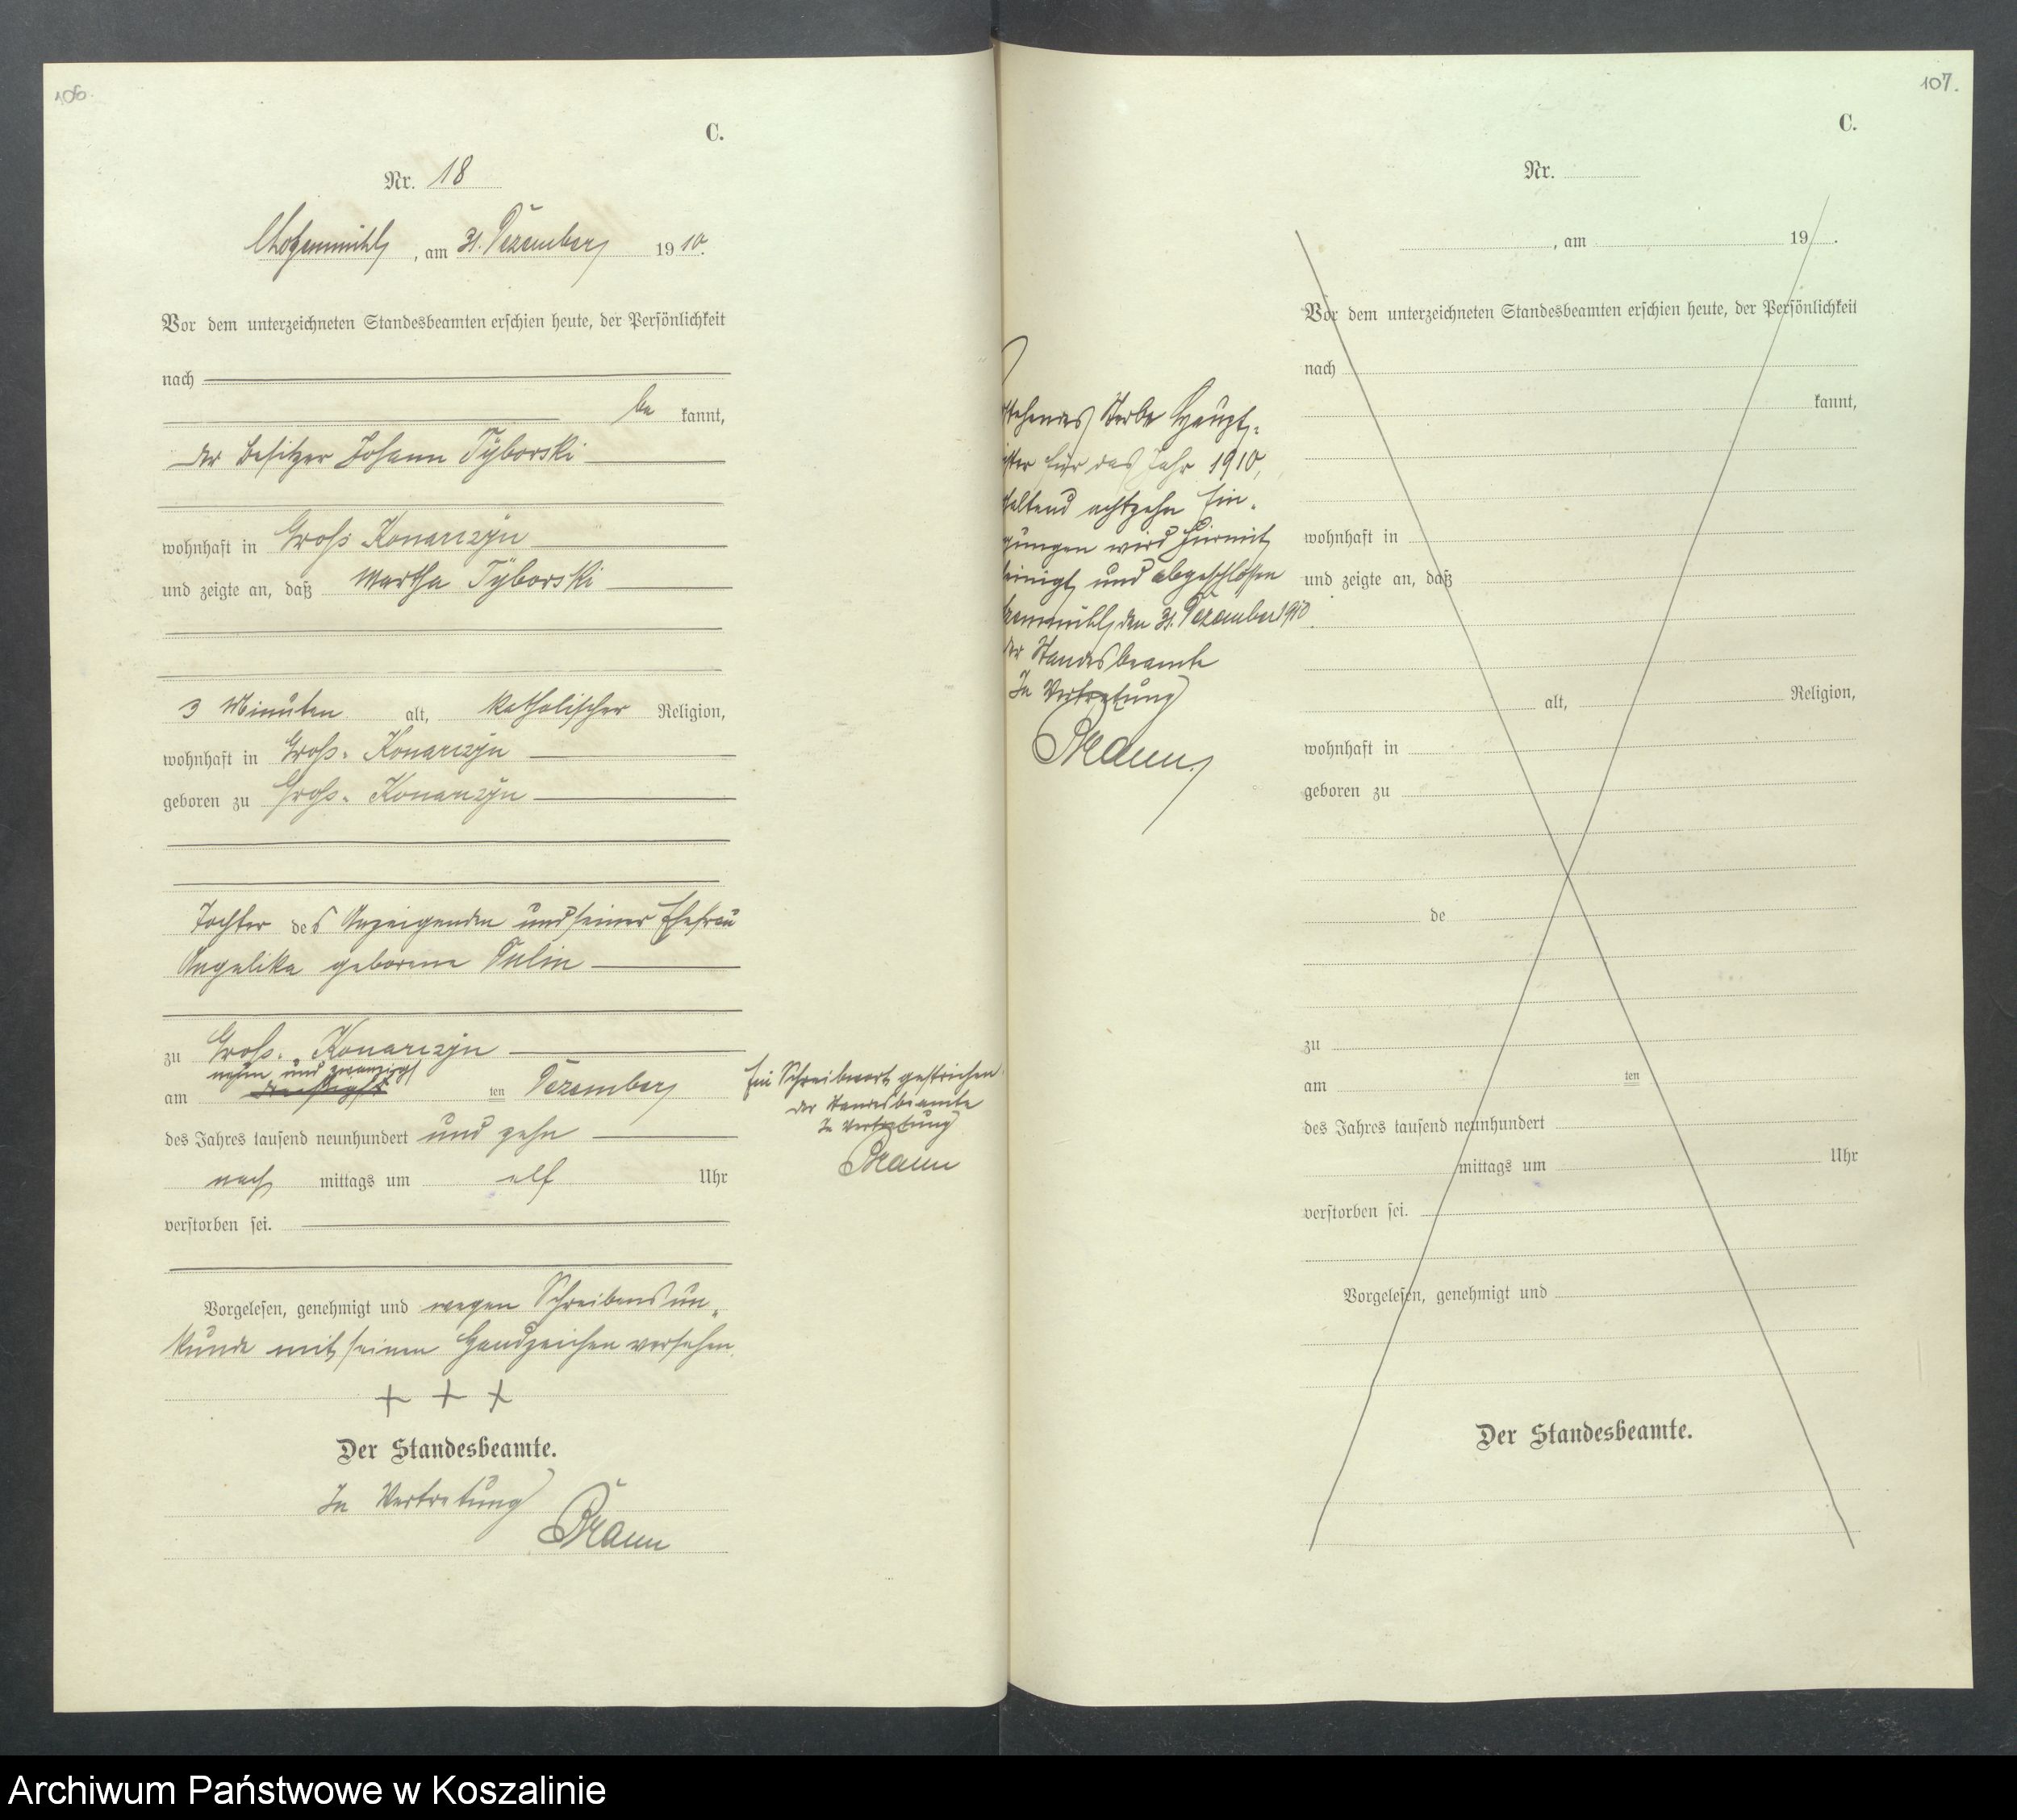 106.
C.
Nr. 18
Chotzenmühl, am 31. Dezember 1910.
Vor dem unterzeichneten Standesbeamten erschien heute, der Persönlichkeit
nach
be kannt,
der Besitzer Johann Tyborski
wohnhaft in Groß Konarczyn
und zeigte an, daß Martha Tyborski
3 Minuten alt, katholischer Religion,
wohnhaft in Groß-Konarczyn
geboren zu Groß-Konarczyn
Tochter des Anzeigenden und seiner Ehefrau
Angelika geborene Dulin
zu Groß-Konarczyn
neun und zwanzigs
am ten Dezember
des Jahres tausend neunhundert und zehn
nach mittags um elf Uhr
verstorben sei.
Ein Schreibwort gestrichen.
der Standesbeamte
In Vertretung
Braun
Vorgelesen, genehmigt und wegen Schreibensun-
kunde mit seinen Handzeichen versehen.
+ + +
Der Standesbeamte.
In Vertretung
Braun
107.
C.
Nr.
, am 19 .
Vor dem unterzeichneten Standesbeamten erschien heute, der Persönlichkeit
nach
kannt,
wohnhaft in
und zeigte an, daß
alt, Religion,
wohnhaft in
geboren zu
de
zu
am ten
des Jahres tausend neunhundert
mittags um Uhr
verstorben sei.
Vorgelesen, genehmigt und
Der Standesbeamte.
stehendes Sterbe Haupt-
ister für das Jahr 1910,
haltend achtzehn Ein-
gungen wird hiermit
einigt und abgeschlossen
zenmühl, den 31. Dezember 1910.
der Standesbeamte
In Vertretung
Braun
Archiwum Państwowe w Koszalinie